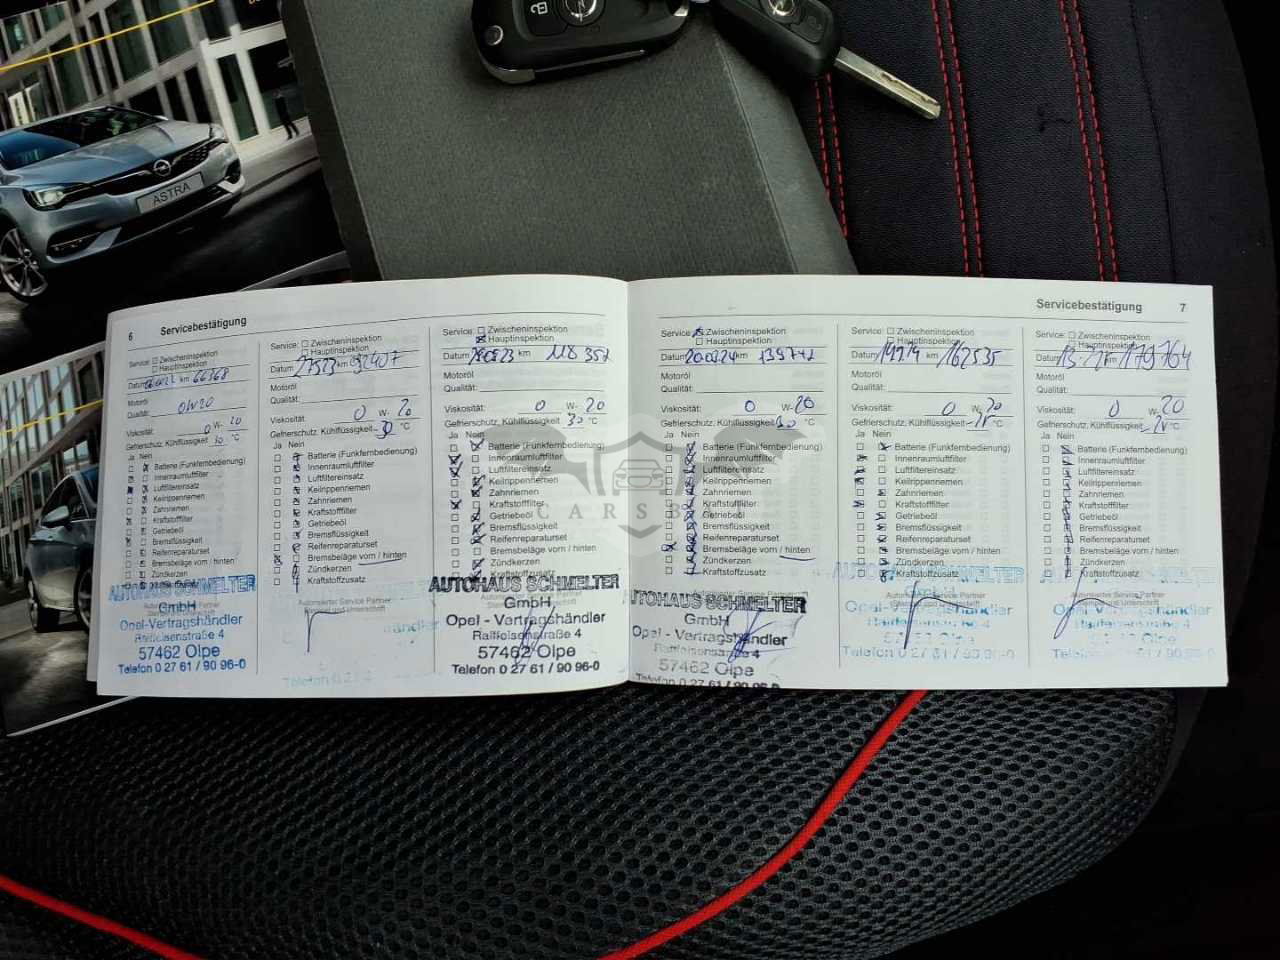 ASTRA
6 Servicebestätigung
Service: Zwischeninspektion
Hauptinspektion
Datum km 66368
Motoröl
Qualität: 0W20
Viskosität: 0 W- 20
Gefrierschutz, Kühlflüssigkeit 30 °C
Ja Nein
Batterie (Funkfernbedienung)
Innenraumluftfilter
Luftfiltereinsatz
Keilrippenriemen
Zahnriemen
Kraftstofffilter
Getriebeöl
Bremsflüssigkeit
Reifenreparaturset
Bremsbeläge vorn / hinten
Zündkerzen
AUTOHAUS SCHMELTER
GmbH
Opel-Vertragshändler
Raiffeisenstraße 4
57462 Olpe
Telefon 0 27 61 / 90 96-0
Service: Zwischeninspektion
Hauptinspektion
Datum 27523 km 92407
Motoröl
Qualität:
Viskosität: 0 W- 20
Gefrierschutz, Kühlflüssigkeit -30 °C
Ja Nein
Batterie (Funkfernbedienung)
Innenraumluftfilter
Luftfiltereinsatz
Keilrippenriemen
Zahnriemen
Kraftstofffilter
Getriebeöl
Bremsflüssigkeit
Reifenreparaturset
Bremsbeläge vorn / hinten
Zündkerzen
Kraftstoffzusatz
Autorisierter Service Partner
Service: Zwischeninspektion
Hauptinspektion
Datum km 118 357
Motoröl
Qualität:
Viskosität: 0 W- 20
Gefrierschutz, Kühlflüssigkeit 30 °C
Ja Nein
Batterie (Funkfernbedienung)
Innenraumluftfilter
Luftfiltereinsatz
Keilrippenriemen
Zahnriemen
Kraftstofffilter
Getriebeöl
Bremsflüssigkeit
Reifenreparaturset
Bremsbeläge vorn / hinten
Zündkerzen
Kraftstoffzusatz
AUTOHAUS SCHMELTER
GmbH
Opel - Vertragshändler
Raiffeisenstraße 4
57462 Olpe
Telefon 0 27 61 / 90 96-0
Servicebestätigung 7
Service: Zwischeninspektion
Hauptinspektion
Datum 20.02.24 km 139742
Motoröl
Qualität:
Viskosität: 0 W- 20
Gefrierschutz, Kühlflüssigkeit 30 °C
Ja Nein
Batterie (Funkfernbedienung)
Innenraumluftfilter
Luftfiltereinsatz
Keilrippenriemen
Zahnriemen
Kraftstofffilter
Getriebeöl
Bremsflüssigkeit
Reifenreparaturset
Bremsbeläge vorn / hinten
Zündkerzen
Kraftstoffzusatz
AUTOHAUS SCHMELTER
GmbH
Opel - Vertragshändler
Raiffeisenstraße 4
57462 Olpe
Telefon 0 27 61 / 90 96-0
Service: Zwischeninspektion
Hauptinspektion
Datum km 162535
Motoröl
Qualität:
Viskosität: 0 W- 20
Gefrierschutz, Kühlflüssigkeit °C
Ja Nein
Batterie (Funkfernbedienung)
Innenraumluftfilter
Luftfiltereinsatz
Keilrippenriemen
Zahnriemen
Kraftstofffilter
Getriebeöl
Bremsflüssigkeit
Reifenreparaturset
Bremsbeläge vorn / hinten
Zündkerzen
Kraftstoffzusatz
AUTOHAUS SCHMELTER
Opel-Vertragshändler
Service: Zwischeninspektion
Hauptinspektion
Datum km 179764
Motoröl
Qualität:
Viskosität: 0 W- 20
Gefrierschutz, Kühlflüssigkeit °C
Ja Nein
Batterie (Funkfernbedienung)
Innenraumluftfilter
Luftfiltereinsatz
Keilrippenriemen
Zahnriemen
Kraftstofffilter
Getriebeöl
Bremsflüssigkeit
Reifenreparaturset
Bremsbeläge vorn / hinten
Zündkerzen
Kraftstoffzusatz
Autorisierter Service Partner
57462 Olpe
Telefon 0 27 61 / 90 96-0
CARSB